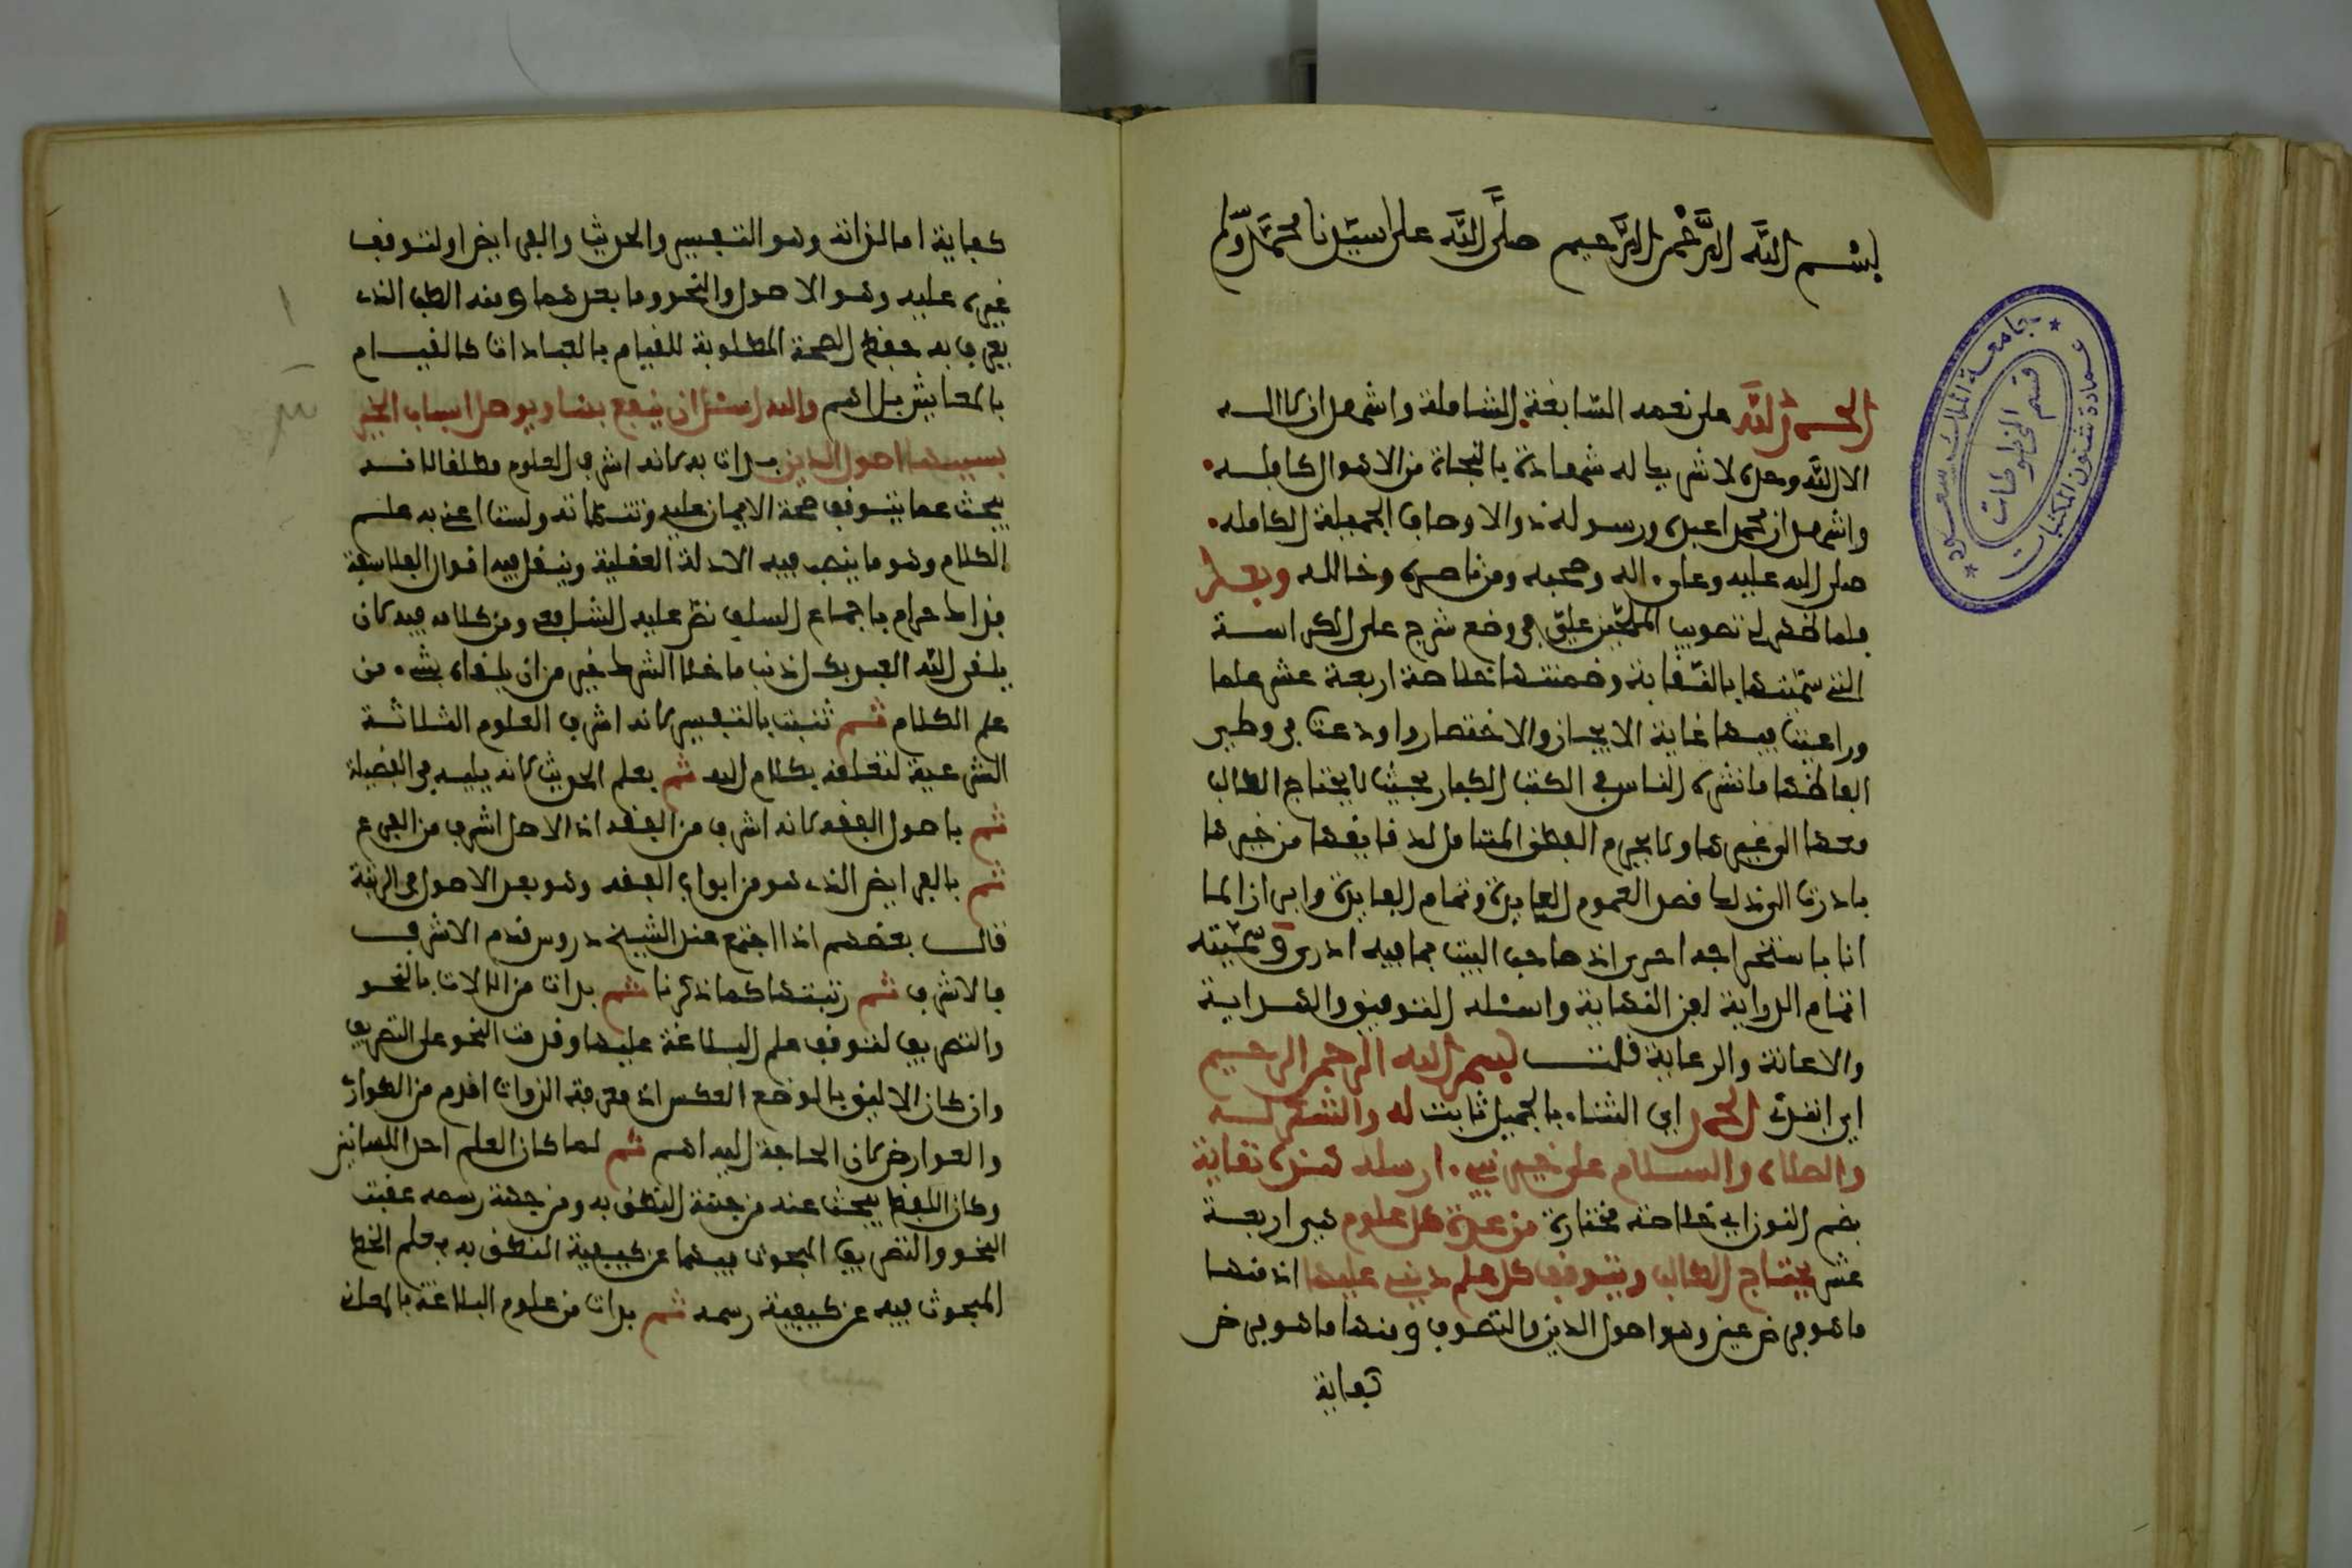 بسم الله الرَّحْمٰن الرَّحيم صلَّى الله على سيّدنا محمَّد وسلم
الحمد لله على نعمه السّابغة الشاملة واشهد ان لا اله
الا الله وحده لا شريك له شهادة بالنجاة من الاهوال كافله
واشهد ان محمدا عبده ورسوله ذو الاوصاف الجميلة الكامله
صلى الله عليه وعلى ءاله وصحبه ومن ناصره وخالله وبعد
فلما ظهر لي تصويب الملحين عليّ في وضع شرح على الكراسة
التي سمّيتها بالنّقاية وضمنتها خلاصة اربعة عشر علما
وراعيت فيها غاية الايجاز والاختصار واودعت في وطي
الفاظها ما نشره الناس في الكتب الكبار بحيث لا يحتاج الطالب
معها الى غيرها ولا يحرم الفطن المتامل لدقايقها من خيرها
بادرت الى ذلك قصد العموم الفايدة وتمام العايدة وابرازا لما
انا باستخراجه احرى اذ صاحب البيت بما فيه ادرى وسمّيته
اتمام الدراية لقراء النقاية واسئله التوفيق والهداية
والاعانة والرعاية قلت بسم الله الرحمن الرحيم
اي ابتدئ الحمد اي الثناء بالجميل ثابت له والشكر له
والصلاة والسلام على خير نبيء ارسله هذه نقاية
بضم النون اي خلاصة مختارة من عدة علوم هي اربعة
عشر يحتاج الطالب ويتوقف كل علم ديني عليها اذ منها
ما هو فرض عين وهو اصول الدين والتصوف ومنها ما هو فرض
كفاية
كفاية اما لذاته وهو التفسير والحديث والفرايض او لتوقف
غيره عليه وهو الاصول والنحو وما بعدهما ومنه الطب الذي
يعرف به حفظ الصحة المطلوبة للقيام بالعبادات كالقيام
بالمعايش بل اهم والله اسئل ان ينفع بها ويوصل اسباب الخير
بسببها اصول الدين بدات به لانه اشرف العلوم مطلقا لانه
يبحث عما يتوقف صحة الايمان عليه وتتماته ولست اعني به علم
الكلام وهو ما ينصب فيه الادلة العقلية وينقل فيه اقوال الفلاسفة
فذاك حرام باجماع السلف نصّ عليه الشافعي ومن كلامه فيه لان
يلقى الله العبد بكل ذنب ما خلا الشرك خير من ان يلقاه بشيء من
علم الكلام ثم ثنيت بالتفسير لانه اشرف العلوم الثلاثة
الشرعية لتعلقه بكلام الله ثم بعلم الحديث لانه يليه في الفضيلة
ثم باصول الفقه لانه اشرف من الفقه اذ الاصل اشرف من الفرع
ثم بالفرايض الذي هو من ابواب الفقه وهو بعد الاصول في الرتبة
قال بعضهم اذا اجتمع عند الشيخ دروس قدم الاشرف
فالاشرف ثم رتبتها كما ذكرنا ثم بدات من الالات بالنحو
والتصريف لتوقف علم البلاغة عليها وقدمت النحو على التصريف
وان كان الاليق بالوضع العكس اذ معرفة الذوات اقدم من الطوارئ
والعوارض لان الحاجة اليه اهم ثم لما كان العلم احد اللسانين
وكان اللفظ يبحث عنه من جهة النطق به ومن جهة رسمه عقبت
النحو والتصريف المبحوث فيهما عن كيفية النطق به بعلم الخط
المبحوث فيه عن كيفية رسمه ثم بدات من علوم البلاغة بالمعاني
جامعة الملك سعود
عمادة شئون المكتبات
قسم المخطوطات